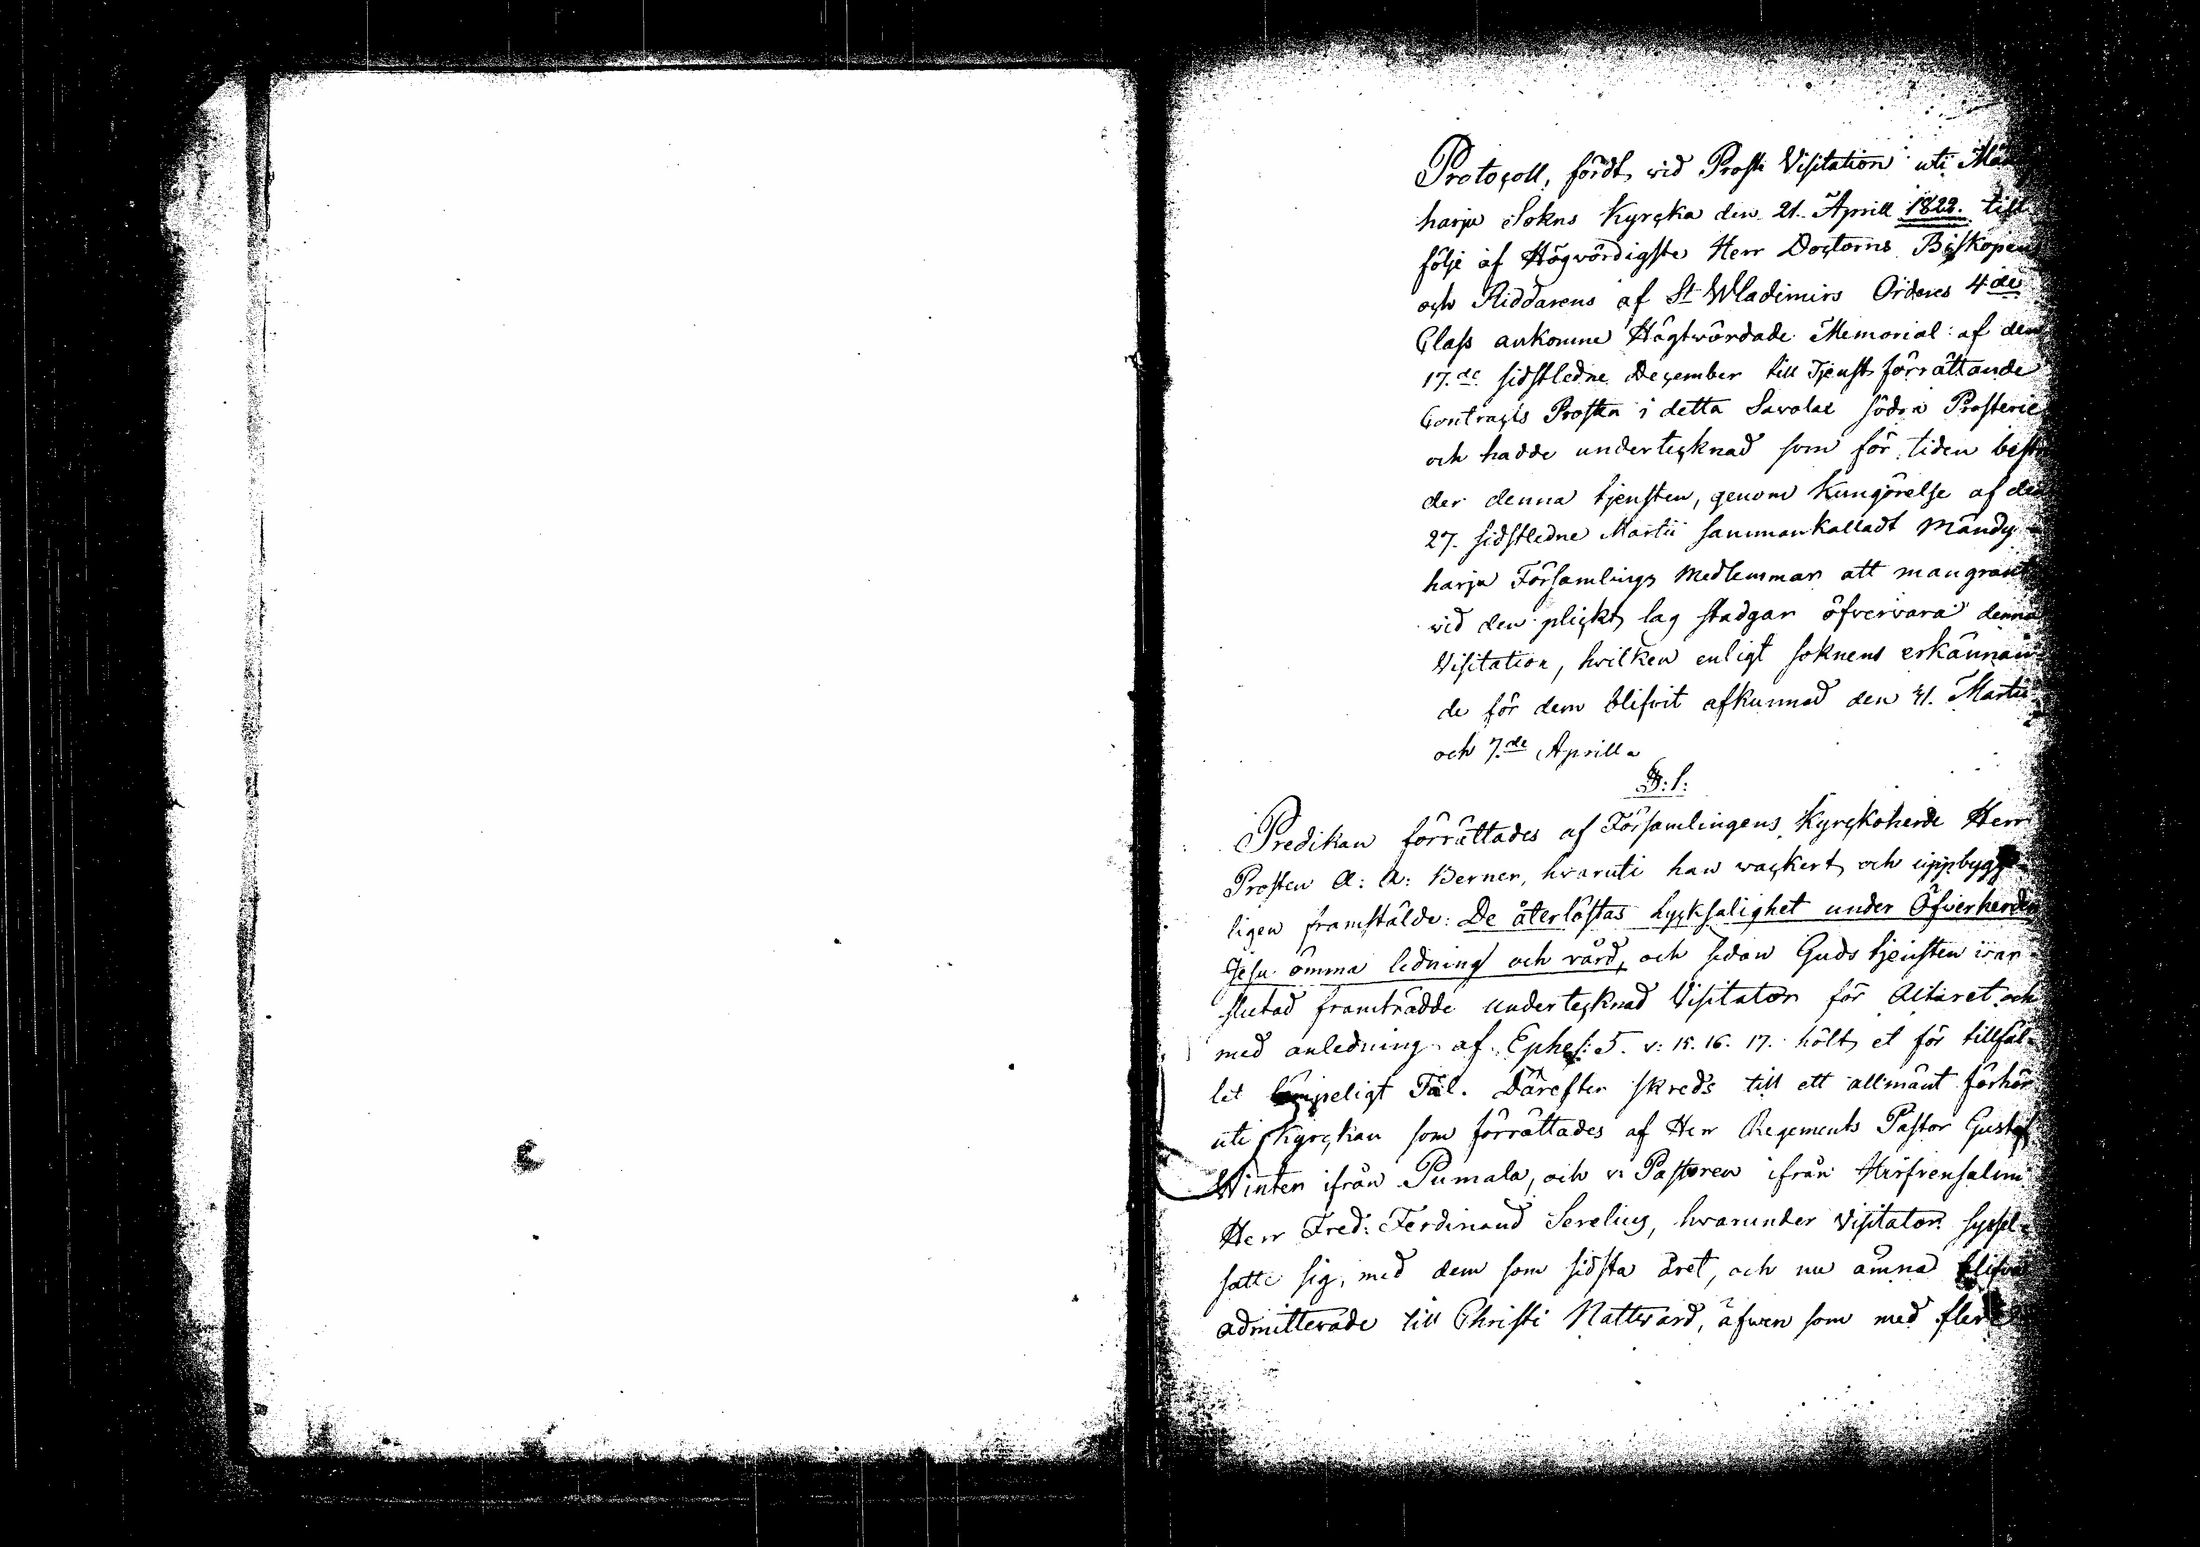 Protocoll, fördt vid Prosti Visitation uti Män
harju Sokns Kyrcka den 21. Aprill 1822. till
följe af Högvördigste Herr Doctorns Biskopens
och Riddarens af St Wladimirs Ordens 4de
Class ankomne Högtvördade Memorial af den
17.de sidstledne December till Tjenst förrättande
Contracts Prosten i detta Savolax södra Prosterie
och hadde undertecknad som för tiden bestri
der denna tjensten, genom Kungörelse af den
27. sidstledne Martii sammankalladt Mändy-
harju Församlings Medlemmar att mangrant
vid den plickt lag stadgar öfvervara denna
Visitation, hvilken enligt soknens erkännan-
de för dem blifvit afkunnad den 31. Martii
och 7.de Aprill.
§: 1:
Predikan förrättades af Församlingens Kyrckoherde Herr
Prosten A: A: Berner, hvaruti han wackert och uppbygg-
ligen framstälde: De återlöstas lycksalighet under Öfverherden
Jesu ömma ledning och vård, och sedan Gudstjensten var
slutad framträdde undertecknad Visitator för Altaret och
med anledning af Ephes: 5. v: 15. 16. 17. hölt et för tillfäl-
let lämpeligt Tal. Därefter skreds till ett allmänt förhör
uti Kyrckan som förrättades af Herr Regements Pastor Gustaf
Winter ifrån Pumala, och v: Pastoren ifrån Hirfvensalmi
Herr Fred: Ferdinand Serelius, hvarunder Visitator syssel-
satte sig, med dem som sidsta året, och nu ämna blifva
admitterade till Christi Nattvard, äfven som med flere